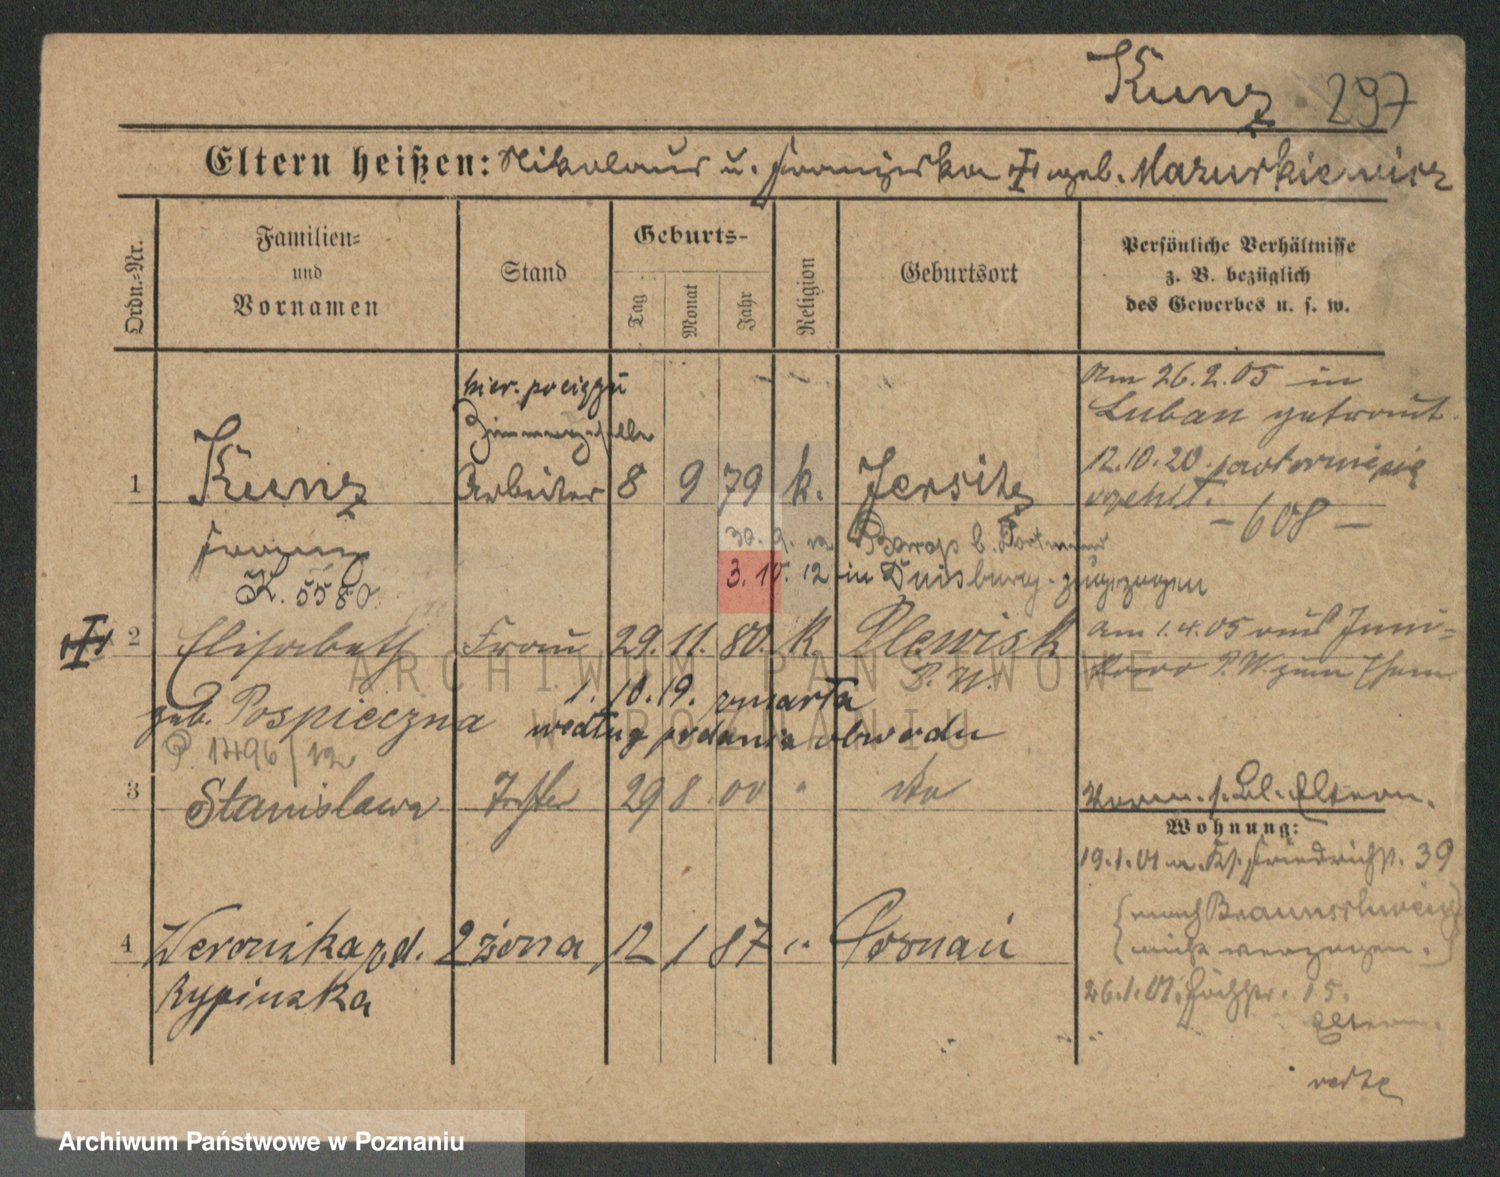 Kunz 297
Eltern heißen: Nikolaus u. Franziska geb. Mazurkiewicz
Ordn.-Nr.
Familien- und Vornamen
Stand
Geburts-
Tag
Monat
Jahr
Religion
Geburtsort
Persönliche Verhältnisse
z. B. bezüglich
des Gewerbes u. s. w.
hier.
Am 26.2.05 in
Luban getraut.
1 Kunz Arbeiter 8 9 79 k. Jersitz
12.10.20.
- 608 -
Franz
30. 9. 12 Barop b.
K. 5580
3. 10. 12 in Duisburg zugezogen
2 Elisabeth Frau 29. 11. 80. k. Plewisk
P. W.
am 1.4.05 aus Juni-
kowo P. W. zum Ehem.
geb. Pospieczna
1. 10. 19. zmarła
według podania obwodu
P. 1496/12
3 Stanislawa Tochter 29 8. 00 " dto
Eltern.
Wohnung:
19.1.01 Friedrichstr. 39
{nach Braunschweig
nicht verzogen.}
4 Weronika zd. 2 żona 12 1 87 " Posnań
Rypińska
26.1.01. 15.
Eltern.
ARCHIWUM PAŃSTWOWE
W POZNANIU
Archiwum Państwowe w Poznaniu